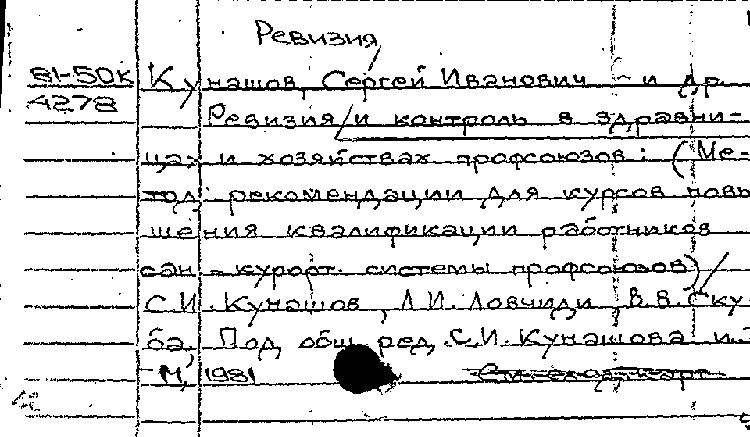 Ревизия
81-50к Кунашов, Сергей Иванович и др.
4278
Ревизия и контроль в здравни-
цах и хозяйствах профсоюзов: (Ме-
тод. рекомендации для курсов повы
шения квалификации работников
сан-курорт. системы профсоюзов)/
С.И. Кунашов, Л.И. Ловчиди, В.В. Ску
ба, Под общ. ред. С.И. Кунашова и.
М, 1981